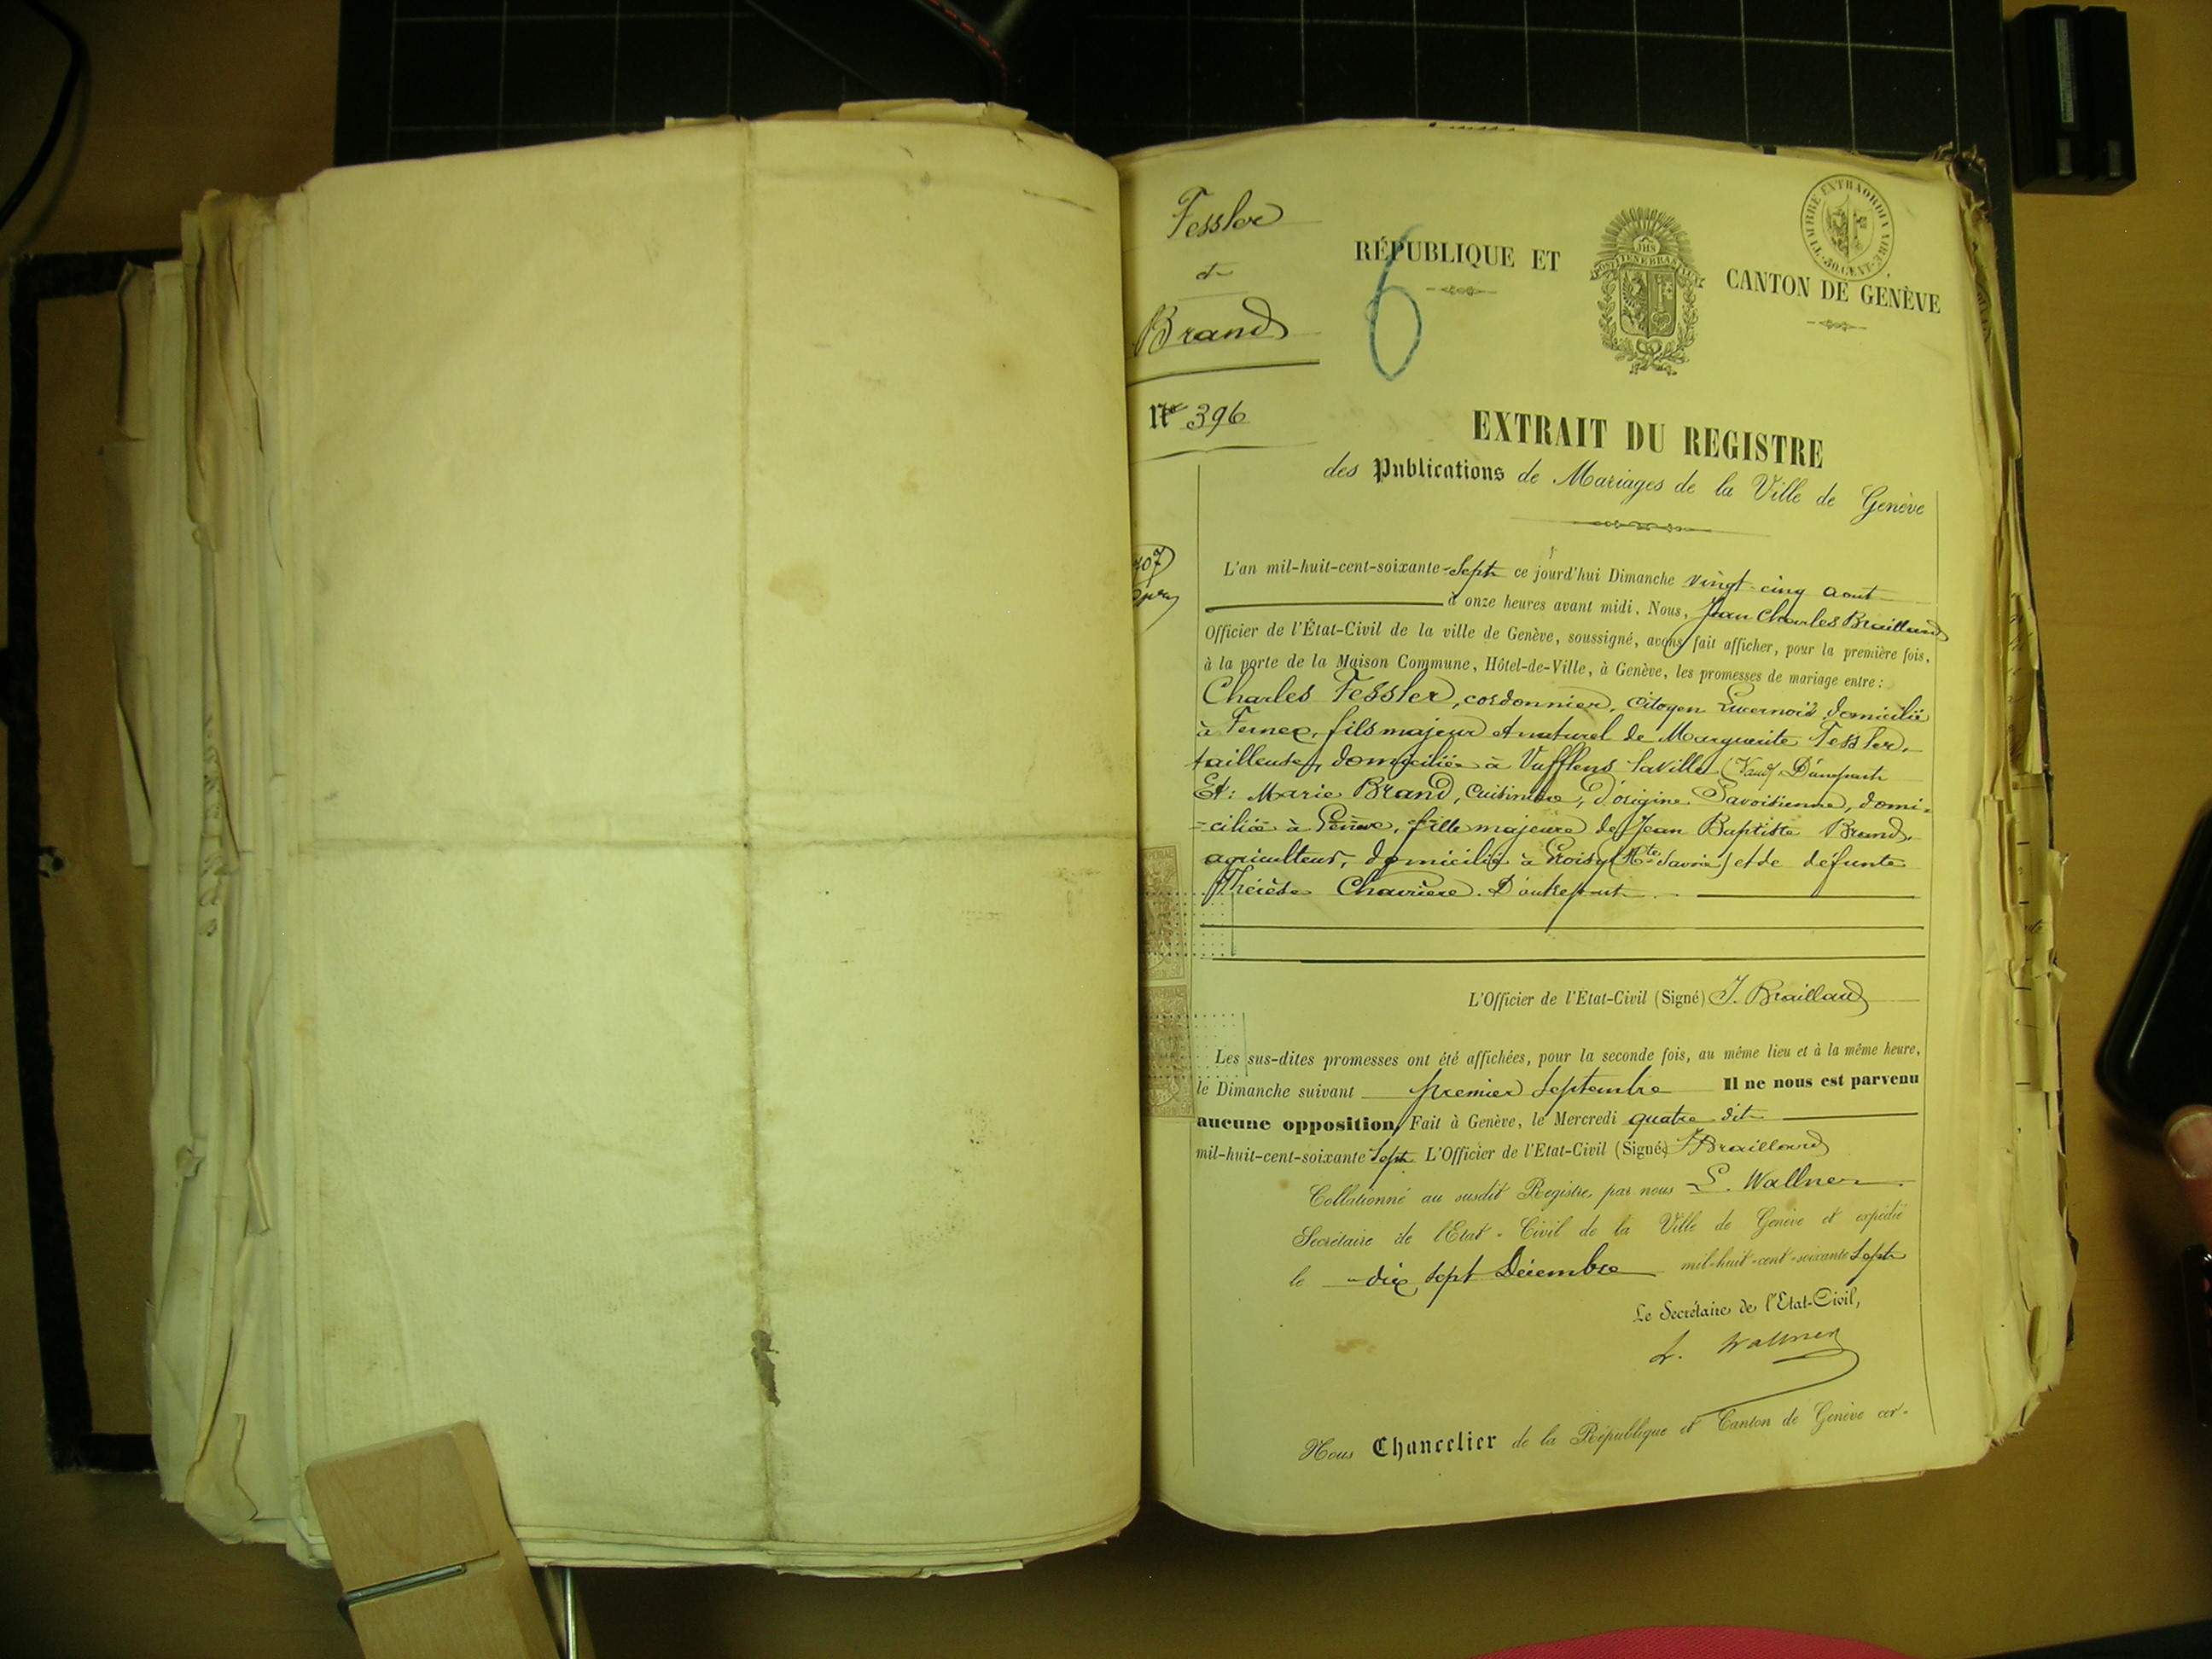 Fessler
et
Brand
N° 396
6
RÉPUBLIQUE ET
JHS
POST TENEBRAS LUX
CANTON DE GENÈVE
TIMBRE EXTRAORDINAIRE
EXTRAIT DU REGISTRE
des Publications de Mariages de la Ville de Genève
L'an mil-huit-cent-soixante-Sept ce jourd'hui Dimanche vingt-cinq Aout
à onze heures avant midi. Nous, Jean Charles Braillard
Officier de l'État-Civil de la ville de Genève, soussigné, avons fait afficher, pour la première fois,
à la porte de la Maison Commune, Hôtel-de-Ville, à Genève, les promesses de mariage entre:
Charles Fessler, cordonnier, citoyen Lucernois domicilié
à Fernex, fils majeur et naturel de Marguerite Fessler,
tailleuse, domiciliée à Vufflens la Ville (Vaud) D'une part
Et: Marie Brand, cuisinière, d'origine Savoisienne, domi-
-ciliée à Genève, fille majeure de Jean Baptiste Brand,
agriculteur, domicilié à Groisy (Hte Savoie) et de défunte
Thérèse Charrière. D'autre part
L'Officier de l'État-Civil (Signé) J. Braillard
Les sus-dites promesses ont été affichées, pour la seconde fois, au même lieu et à la même heure,
le Dimanche suivant premier Septembre Il ne nous est parvenu
aucune opposition, Fait à Genève, le Mercredi quatre dit
mil-huit-cent-soixante Sept L'Officier de l'Etat-Civil (Signé) J Braillard
Collationné au susdit Registre, par nous L. Wallner
Secrétaire de l'Etat-Civil de la Ville de Genève et expédié
le dix sept Décembre mil-huit-cent-soixante Sept
Le Secrétaire de l'Etat-Civil,
L. Wallner
Nous Chancelier de la République et Canton de Genève cer-